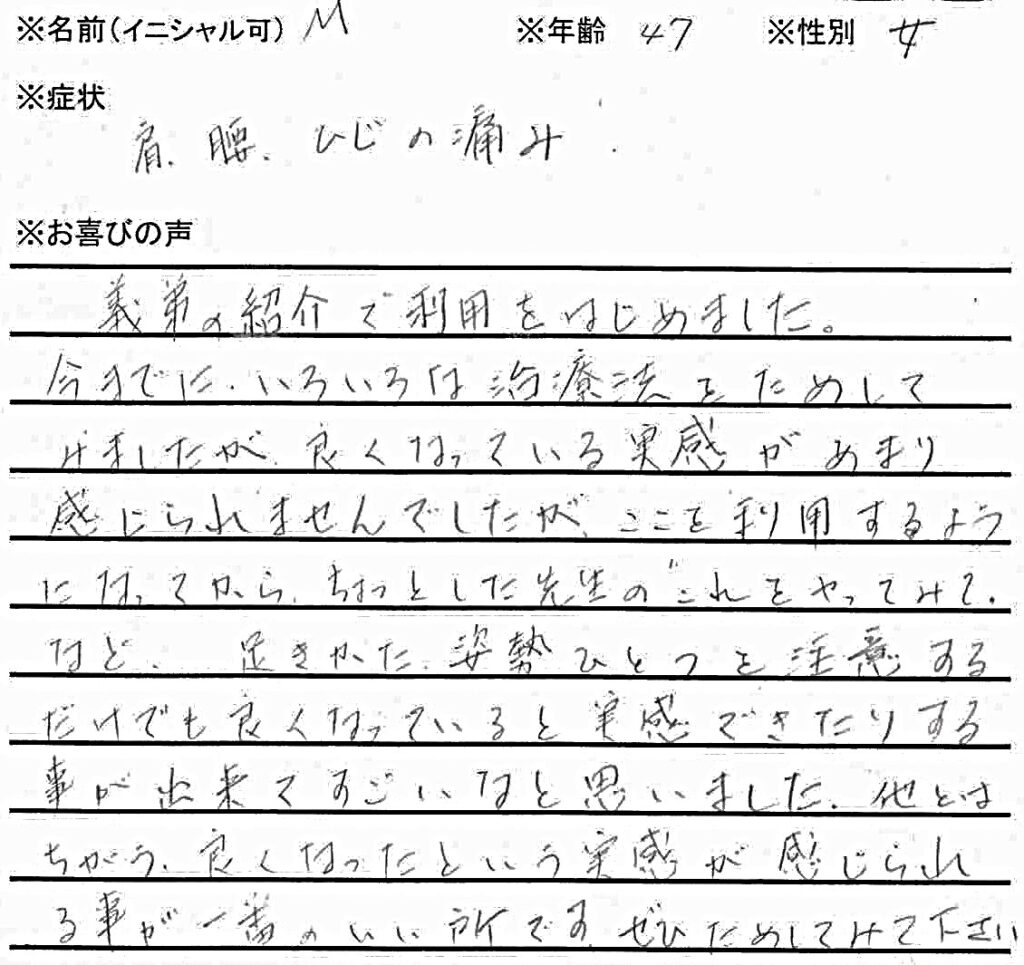 ※名前(イニシャル可) M ※年齢 47 ※性別 女
※症状
肩、腰、ひじの痛み
※お喜びの声
義弟の紹介で利用をはじめました。
今までに、いろいろな治療法をためして
みましたが、良くなっている実感があまり
感じられませんでしたが、ここを利用するよう
になってから、ちょっとした先生の"これをやってみて。
など、歩きかた、姿勢ひとつを注意する
だけでも良くなっていると実感できたりする
事が出来てすごいなと思いました。他とは
ちがう、良くなったという実感が感じられ
る事が一番のいい所です。ぜひためしてみて下さい